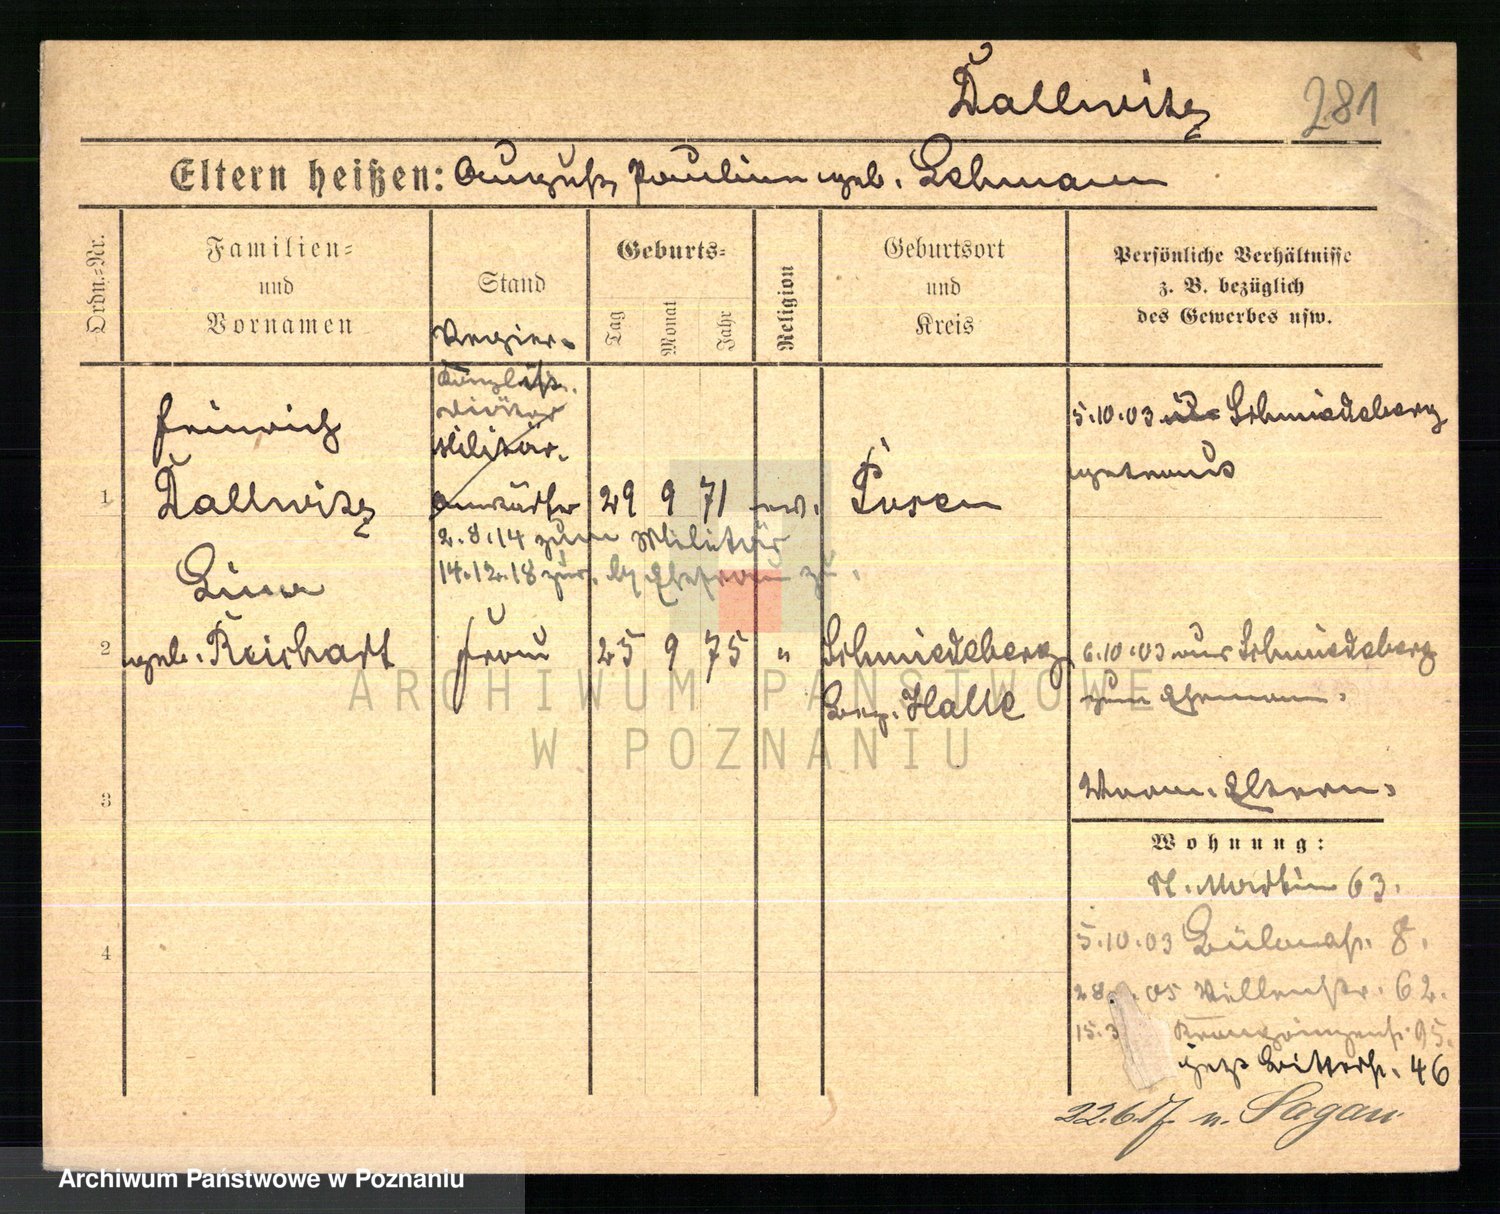 Dallwitz 281
Eltern heißen: August, Pauline geb. Lehmann
Ordn.-Nr.
Familien-
und
Vornamen
Stand
Geburts-
Tag
Monat
Jahr
Religion
Geburtsort
und
Kreis
Persönliche Verhältnisse
z. B. bezüglich
des Gewerbes usw.
Regier.
Kanzlist.
Militär.
anwärter
1
Heinrich
Dallwitz
29 9 71 ev. Posen
5.10.03 Schmiedeberg
getraut
2.8.14 zum Militär
14.12.18 zur. Ehefrau zu.
2
Lina
geb. Reichart
Frau
25 9 75 "
Schmiedeberg
Bez. Halle
6.10.03 aus Schmiedeberg
zum Ehemann.
3
Eltern.
4
Wohnung:
St. Martin 63.
5.10.03 Bülowstr. 8.
28. 05 62.
15.3 Kronprinzenstr. 95.
jetzt Bitterstr. 46
22.6. n. Sagan
ARCHIWUM PAŃSTWOWE
W POZNANIU
Archiwum Państwowe w Poznaniu